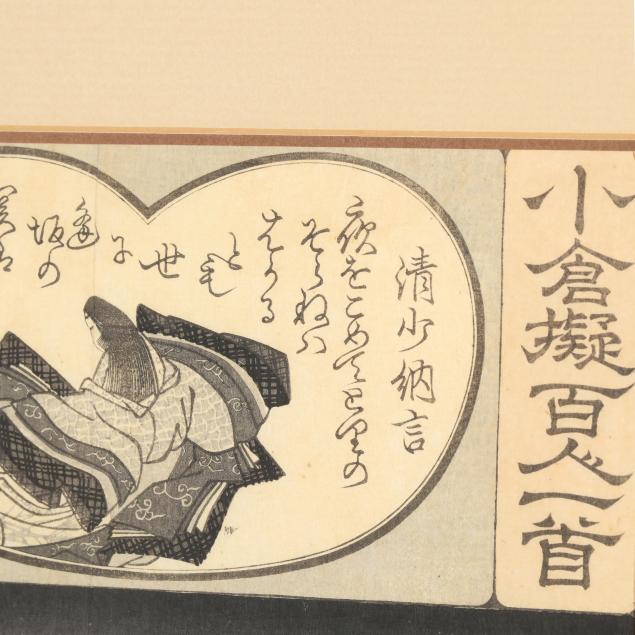 小倉擬百人一首
清少納言
夜をこめて鳥の
そらねハ
はかる
とも
世
に
逢
坂の